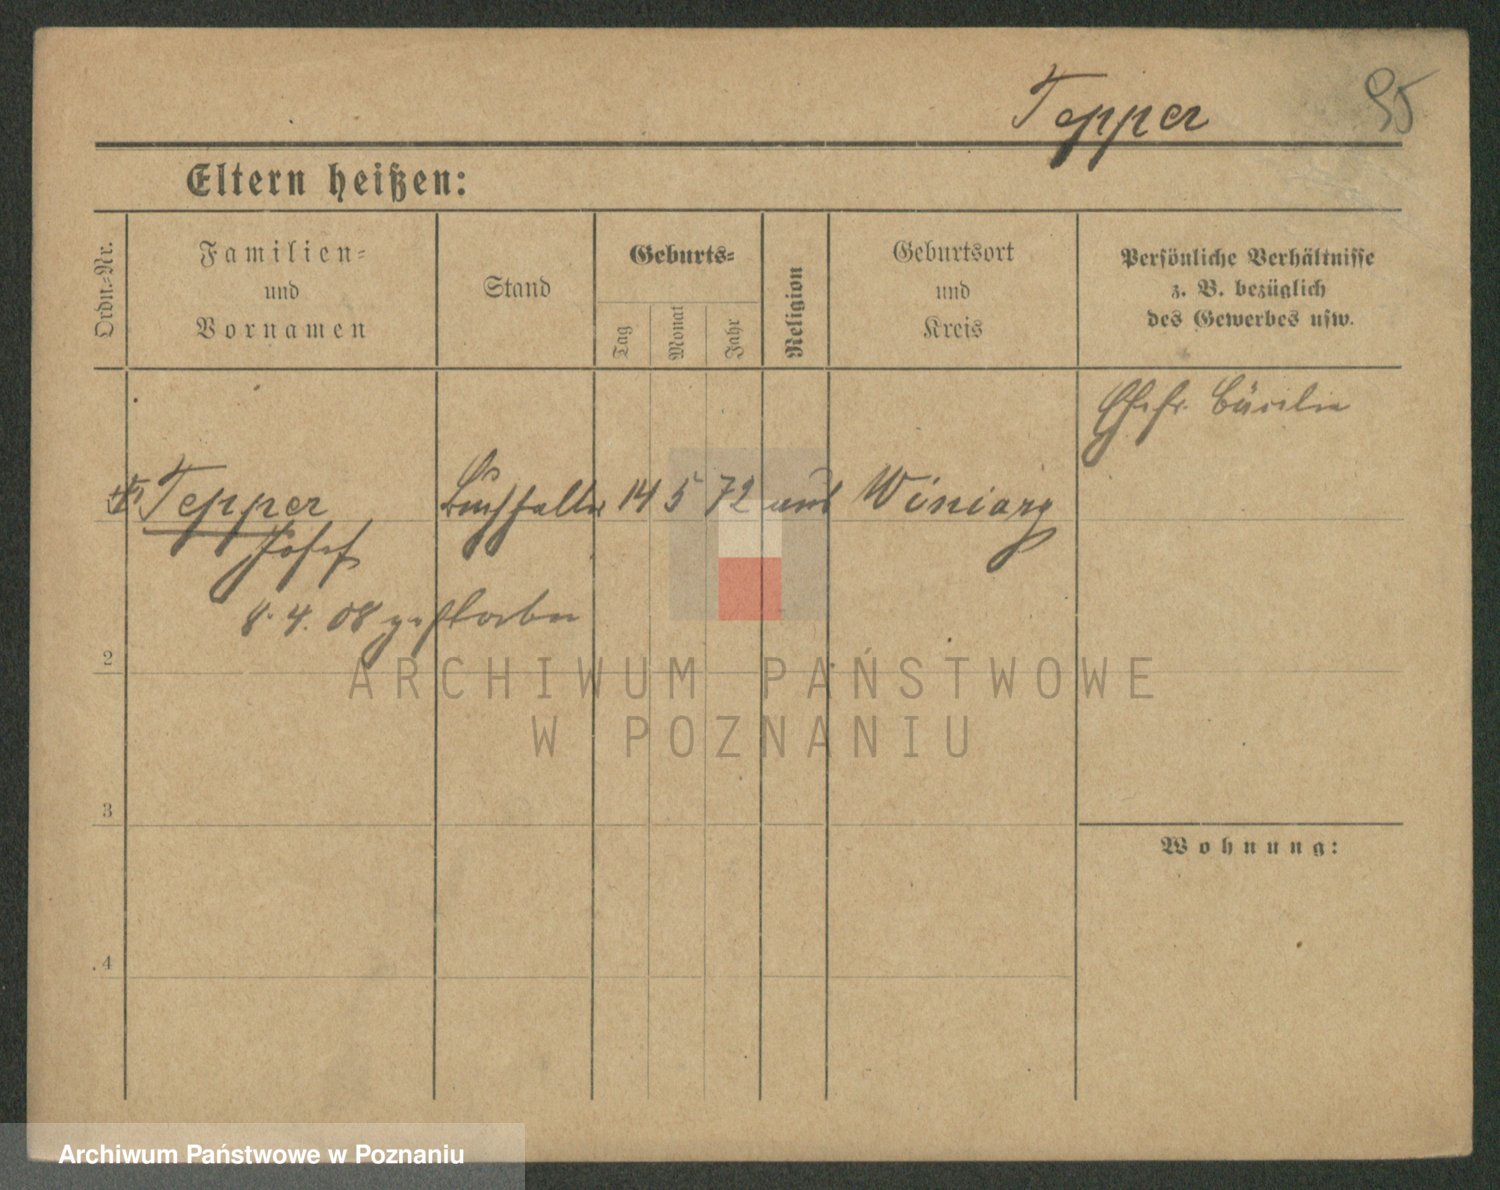 Tepper
95
Eltern heißen:
Ordn.-Nr.
Familien-
und
Vornamen
Stand
Geburts-
Tag
Monat
Jahr
Religion
Geburtsort
und
Kreis
Persönliche Verhältnisse
z. B. bezüglich
des Gewerbes usw.
Ehefr. Cäcilie
Tepper Buchhalter 14 5 72 Winiary
Josef
8. 4. 08 gestorben
2
3
4
Wohnung:
ARCHIWUM PAŃSTWOWE
W POZNANIU
Archiwum Państwowe w Poznaniu